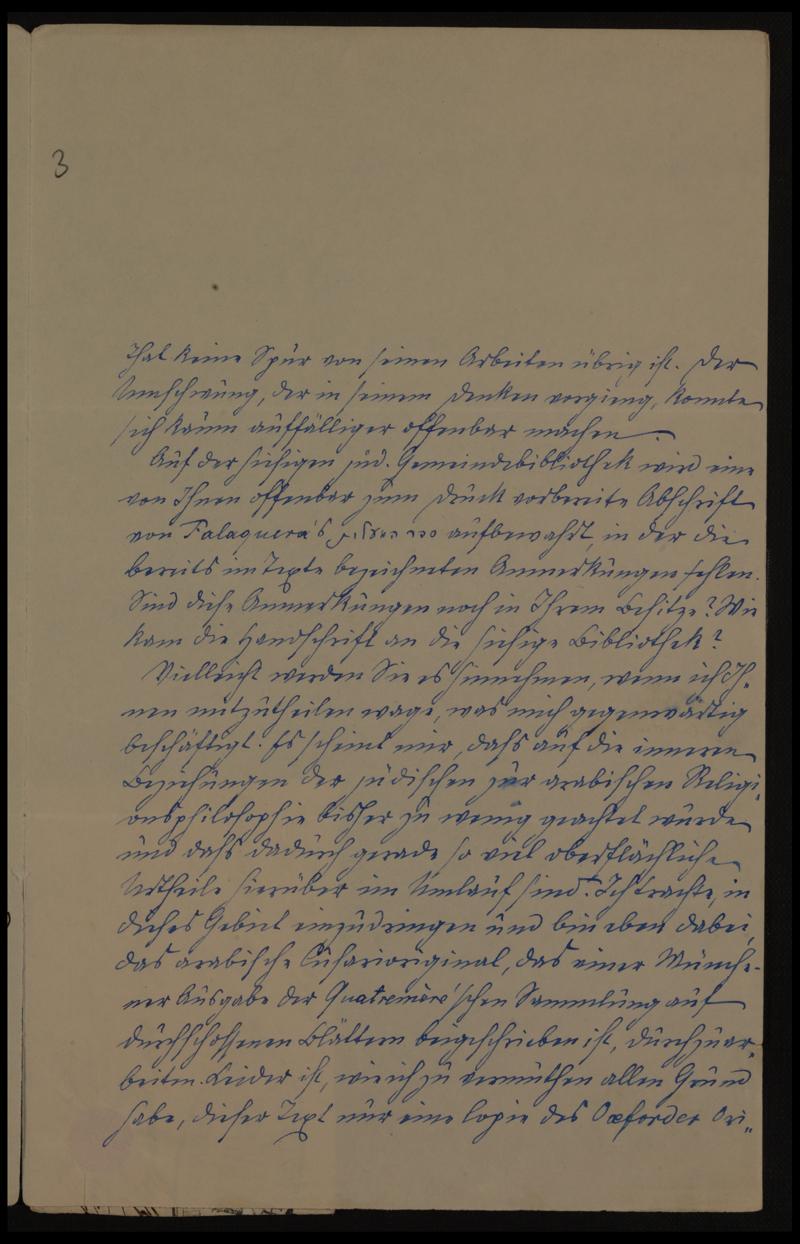 3
That keine Spur von seinen Arbeiten übrig ist. Der
Umschwung, der in seinem Denken vorgieng, konnte
sich kaum auffälliger offenbar machen.
Auf der hiesigen jüd. Gemeindebibliothek wird eine
von Ihnen offenbar zum Druck vorbereite Abschrift
von Palaquera's aufbewahrt, in der die
bereits im Texte bezeichneten Anmerkungen fehlen.
Sind diese Anmerkungen noch in Ihrem Besitze? Wie
kam die Handschrift an die hiesige Bibliothek?
Vielleicht werden Sie es hinnehmen, wenn ich Ih-
nen mitzutheilen wage, was mich gegenwärtig
beschäftigt. Es scheint mir, dass auf die inneren
Beziehungen der jüdischen zur arabischen Religi-
onsphilosophie bisher zu wenig geachtet wurde
und dass dadurch gerade so viel oberflächliche
Urtheile hierüber im Umlauf sind. Ich trachte, in
dieses Gebiet einzudringen und bin eben dabei,
das arabische Cusarioriginal, das einer Münche-
ner Ausgabe der Quatremère'schen Sammlung auf
durchschossenen Blättern beigeschrieben ist, durchzuar-
beiten. Leider ist, wie ich zu vermuthen allen Grund
habe, dieser Text nur eine Copie des Oxforder Ori-